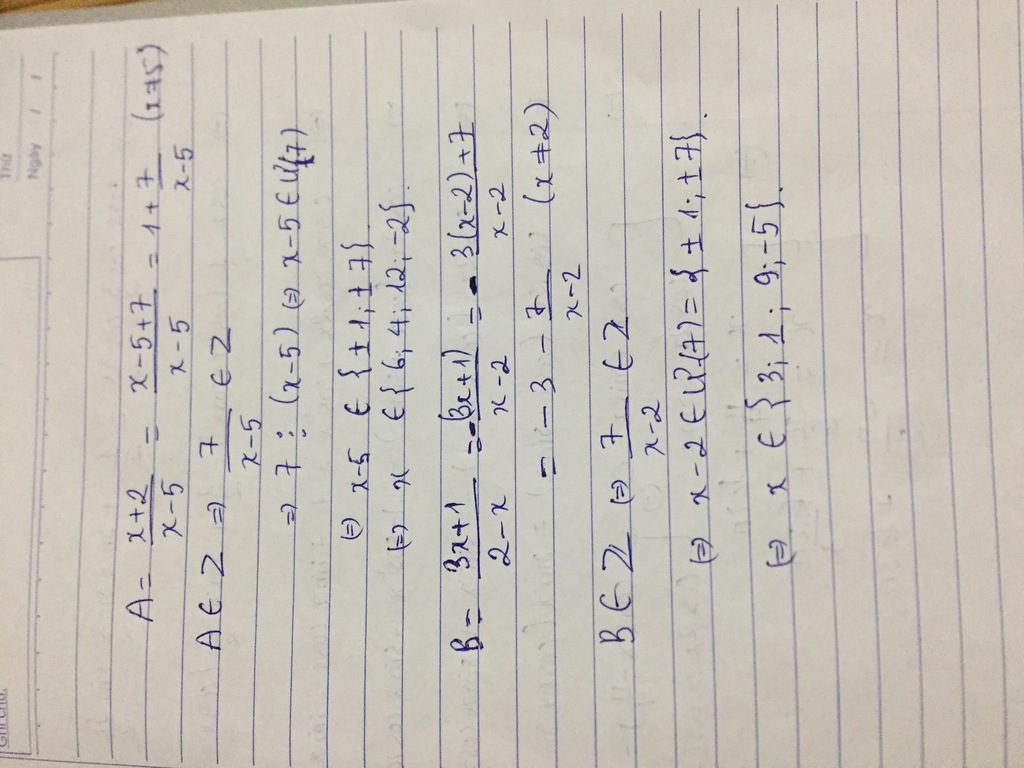 Ghi chú:
Thứ
Ngày / /
A = \frac{x+2}{x-5} = \frac{x-5+7}{x-5} = 1 + \frac{7}{x-5} (x ≠ 5)
A ∈ Z ⇒ \frac{7}{x-5} ∈ Z
⇒ 7 ⋮ (x-5) ⇔ x-5 ∈ Ư(7)
⇔ x-5 ∈ {±1; ±7}.
⇔ x ∈ {6; 4; 12; -2}.
B = \frac{3x+1}{2-x} = -\frac{(3x+1)}{x-2} = -\frac{3(x-2)+7}{x-2}
= -3 - \frac{7}{x-2} (x ≠ 2)
B ∈ Z ⇔ \frac{7}{x-2} ∈ Z
⇔ x-2 ∈ Ư(7) = {±1; ±7}.
⇔ x ∈ {3; 1; 9; -5}.